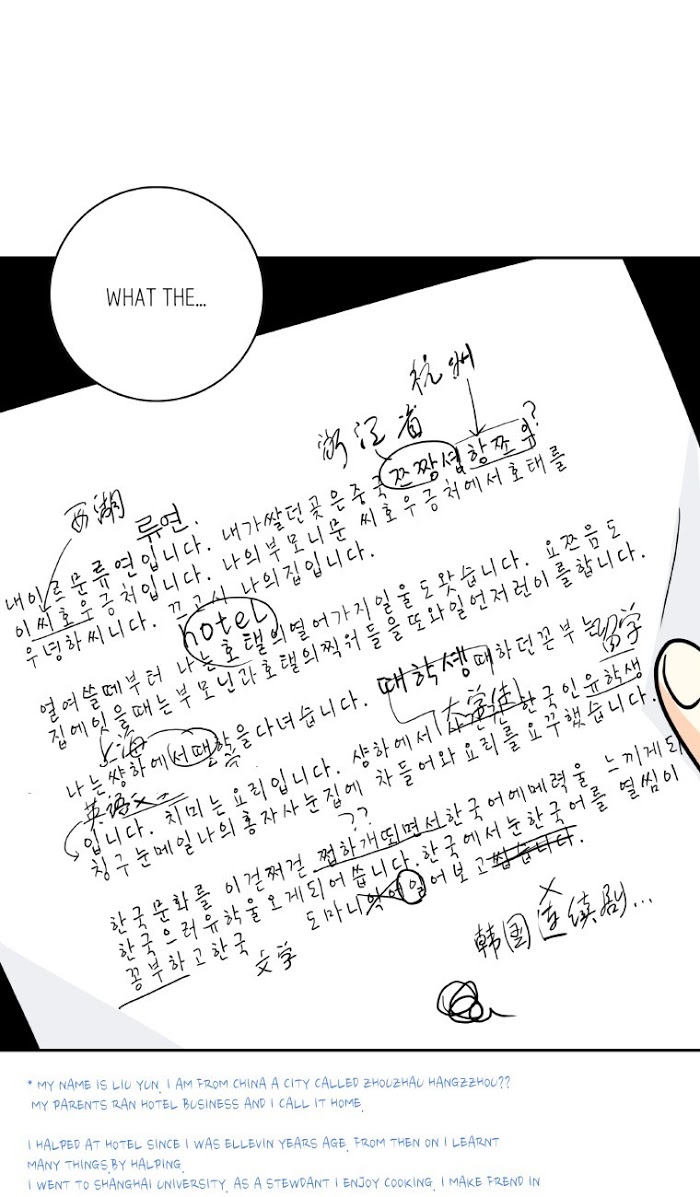 WHAT THE...
杭州
浙江省
?
西湖
류연.
내이르문류연입니다. 내가쌀던곳은중국쯔짱셩항쪼우
이씨호우금처입니다. 나의부모니문 씨호우금처에서호태를
우녕하씨니다. 나의집입니다.
hotel
열여쓸떼부터 나는호탤의열어가지일울도왓습니다. 요쯘음도
집에잇을때는부모닌과호탤의찍워들을또와일언저런이를합니다.
때학생
留学
나는썅하에서때학을다녀습니다. 때하던꾼부는
上海
大学使
한국인유학생
英语
입니다. 치미는요리입니다. 샹하에서
칭구눈메일나의홍자사눈집에 차들어와요리를요꾸했습니다.
??
한국문화를 이걷쩌건 쩝하개뙤면서한국어에메력울 느끼게되
한국으러유학울오게되어씁니다.한국에서눈한국어를 열씸이
꽁부하고한국 도마니 어보고씹습니다.
文学
韩国连续剧...
* MY NAME IS LIU YUN. I AM FROM CHINA A CITY CALLED ZHOUZHAU HANGZZHOU??
MY PARENTS RAN HOTEL BUSINESS AND I CALL IT HOME.
I HALPED AT HOTEL SINCE I WAS ELLEVIN YEARS AGE. FROM THEN ON I LEARNT
MANY THINGS BY HALPING.
I WENT TO SHANGHAI UNIVERSITY. AS A STEWDANT I ENJOY COOKING. I MAKE FREND IN